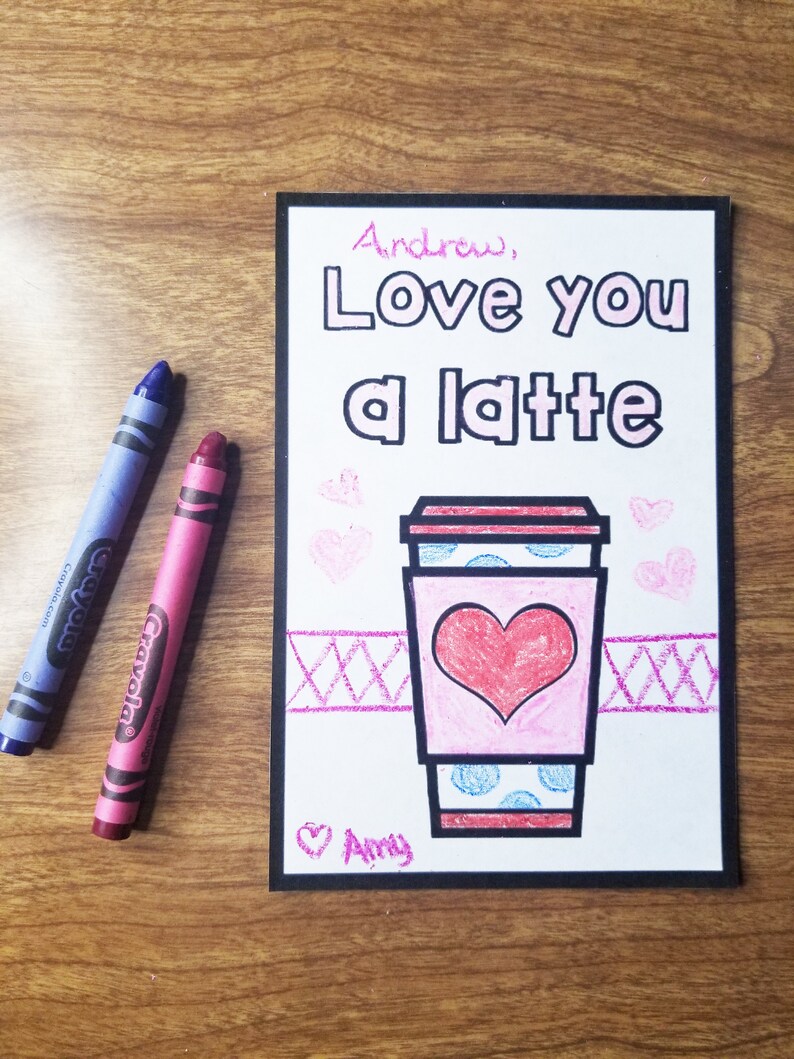 Andrew,
Love you
a latte
♡ Amy
Crayola
Crayola.com
Crayola